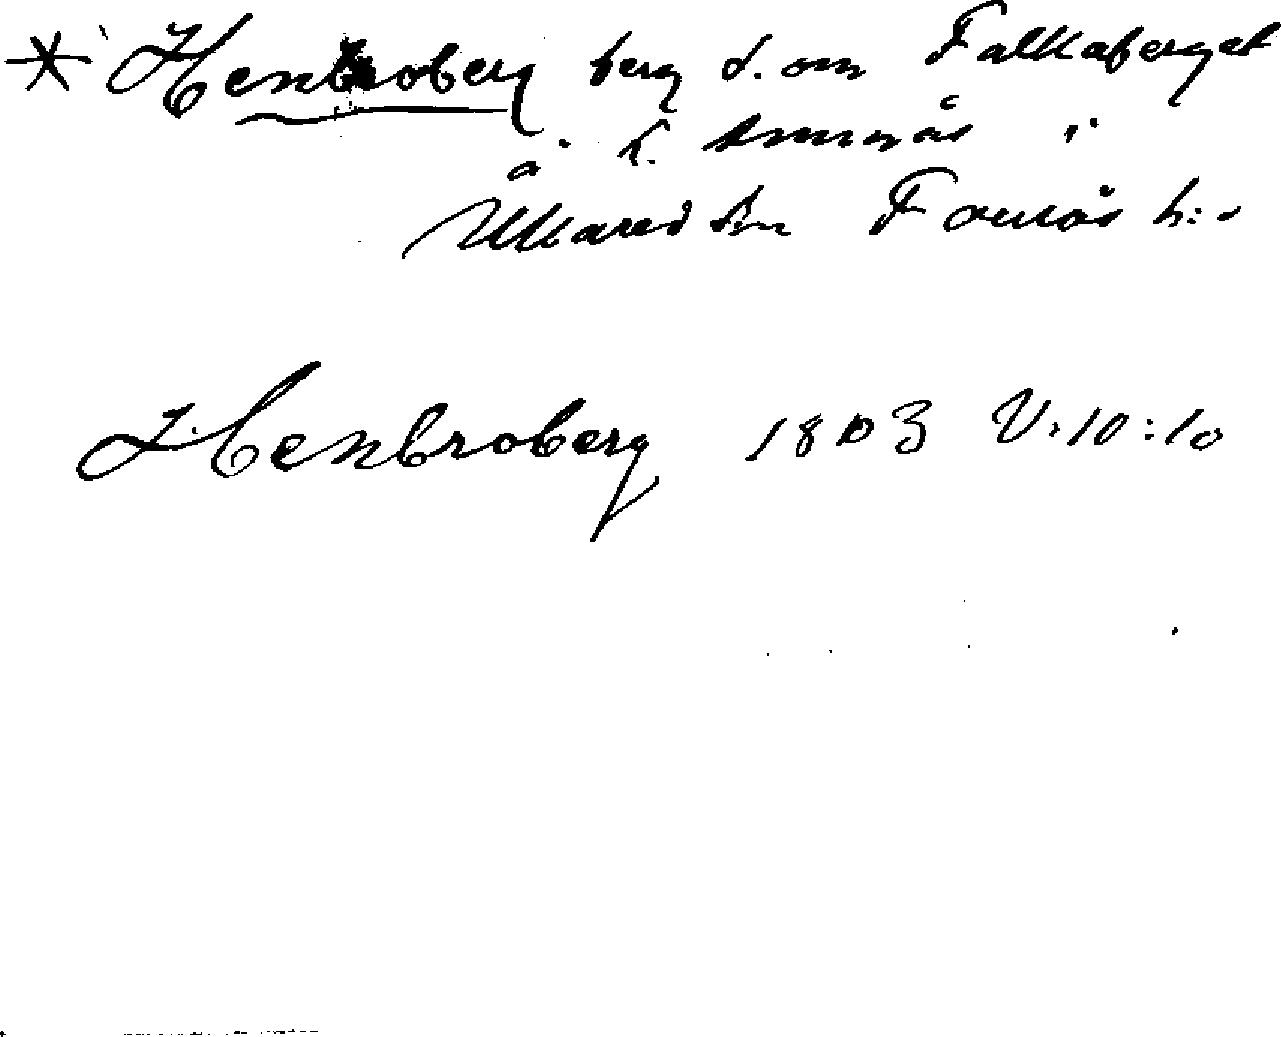 * Henbroberg berg d. om Falkaberget
å h.
Ullared sn Faurås h:d
Henbroberg 1803 V:10:10